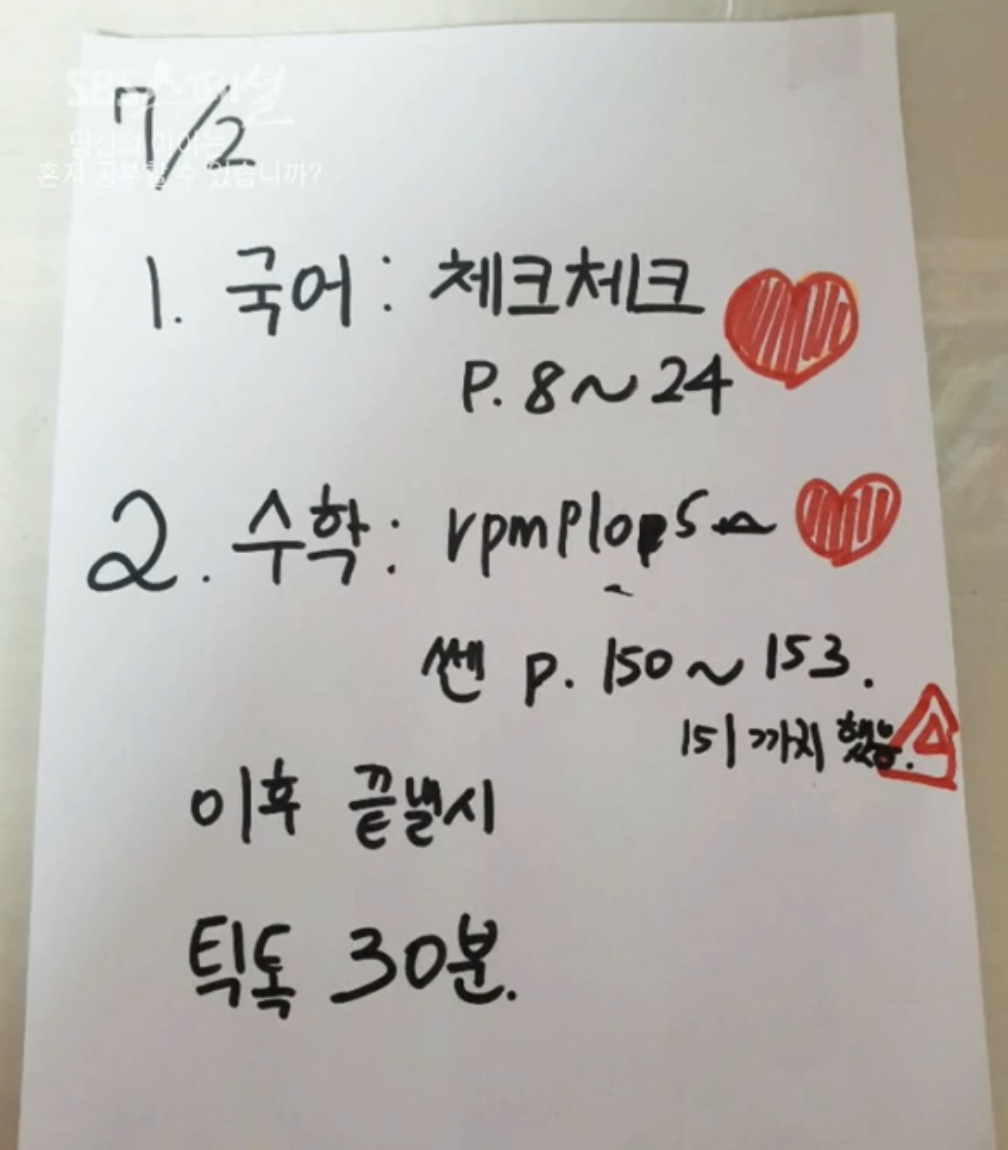 SBS스페셜
당신의 아이는
혼자 공부할 수 있습니까?
7/2
1. 국어: 체크체크
P. 8~24
2. 수학:
쎈 p. 150~153.
151까지 했음.
이후 끝낼시
틱톡 30분.